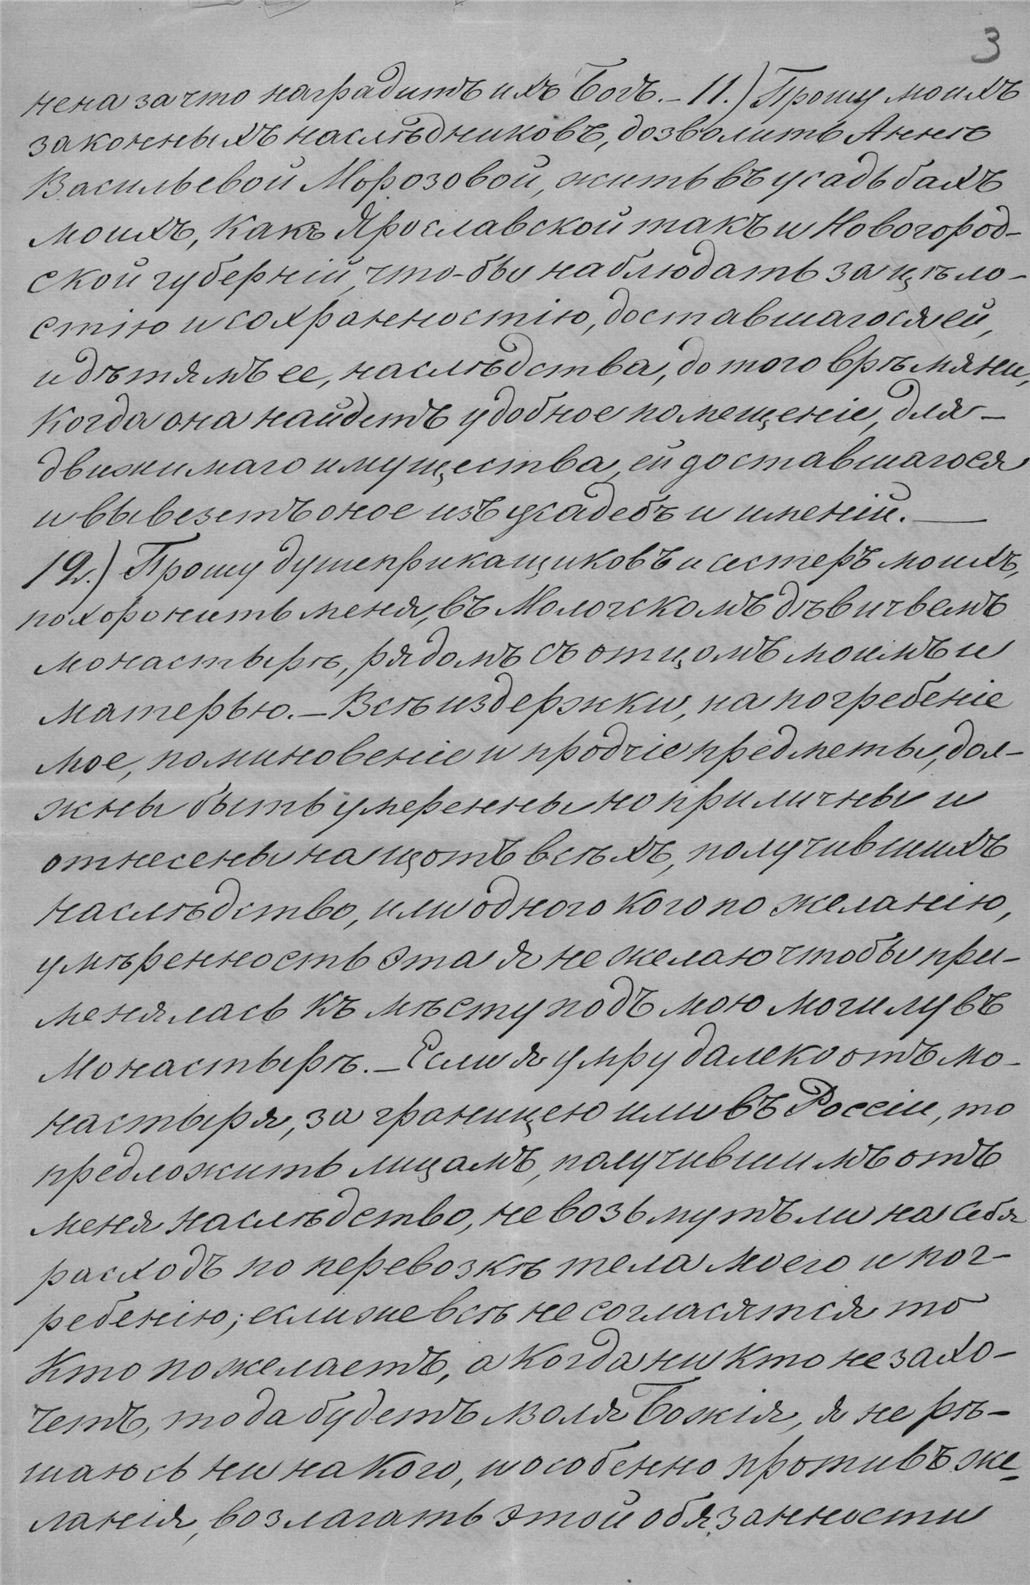 3
нена за что наградитъ ихъ Богъ. – 11.) Прошу моихъ
законныхъ наслѣдниковъ, дозволить Аннѣ
Васильевой Морозовой, жить въ усадьбахъ
моихъ, какъ Ярославской такъ и Новогород-
ской губерній, что-бы наблюдать за цѣло-
стію и сохранностію, доставшагося ей,
и дѣтямъ ее, наслѣдства, до того врѣмяни,
когда она найдетъ удобное помещеніе, для –
движимаго имущества, ей доставшагося
и вывезетъ оное изъ усадебъ и имений. —
12.) Прошу душеприкащиковъ и сестеръ моихъ,
похоронить меня, въ Мологскомъ дѣвичьемъ
монастырѣ, рядомъ съ отцомъ моимъ и
матерью. – Всѣ издержки, на погребеніе
мое, поминовеніе и продчіе предметы, дол-
жны быть умеренны но приличны и
отнесены на щотъ всѣхъ, получившихъ
наслѣдство, или одного кого по желанію,
умѣренность эта я не желаю чтобы при-
менялась къ мѣсту подъ мою могилу въ
монастырѣ. – Если я умру далеко отъ мо-
настыря, за границею или въ Россіи, то
предложить лицамъ, получившимъ отъ
меня наслѣдство, не возьмутъ ли на себя
расходъ по перевозкѣ тела моего и пог-
ребенію; если же всѣ не согласятся то
кто пожелаетъ, а когда ни кто не захо-
четъ, то да будетъ воля Божія, я не рѣ-
шаюсь ни на кого, и особенно противъ же-
ланія, возлагать этой обязанности